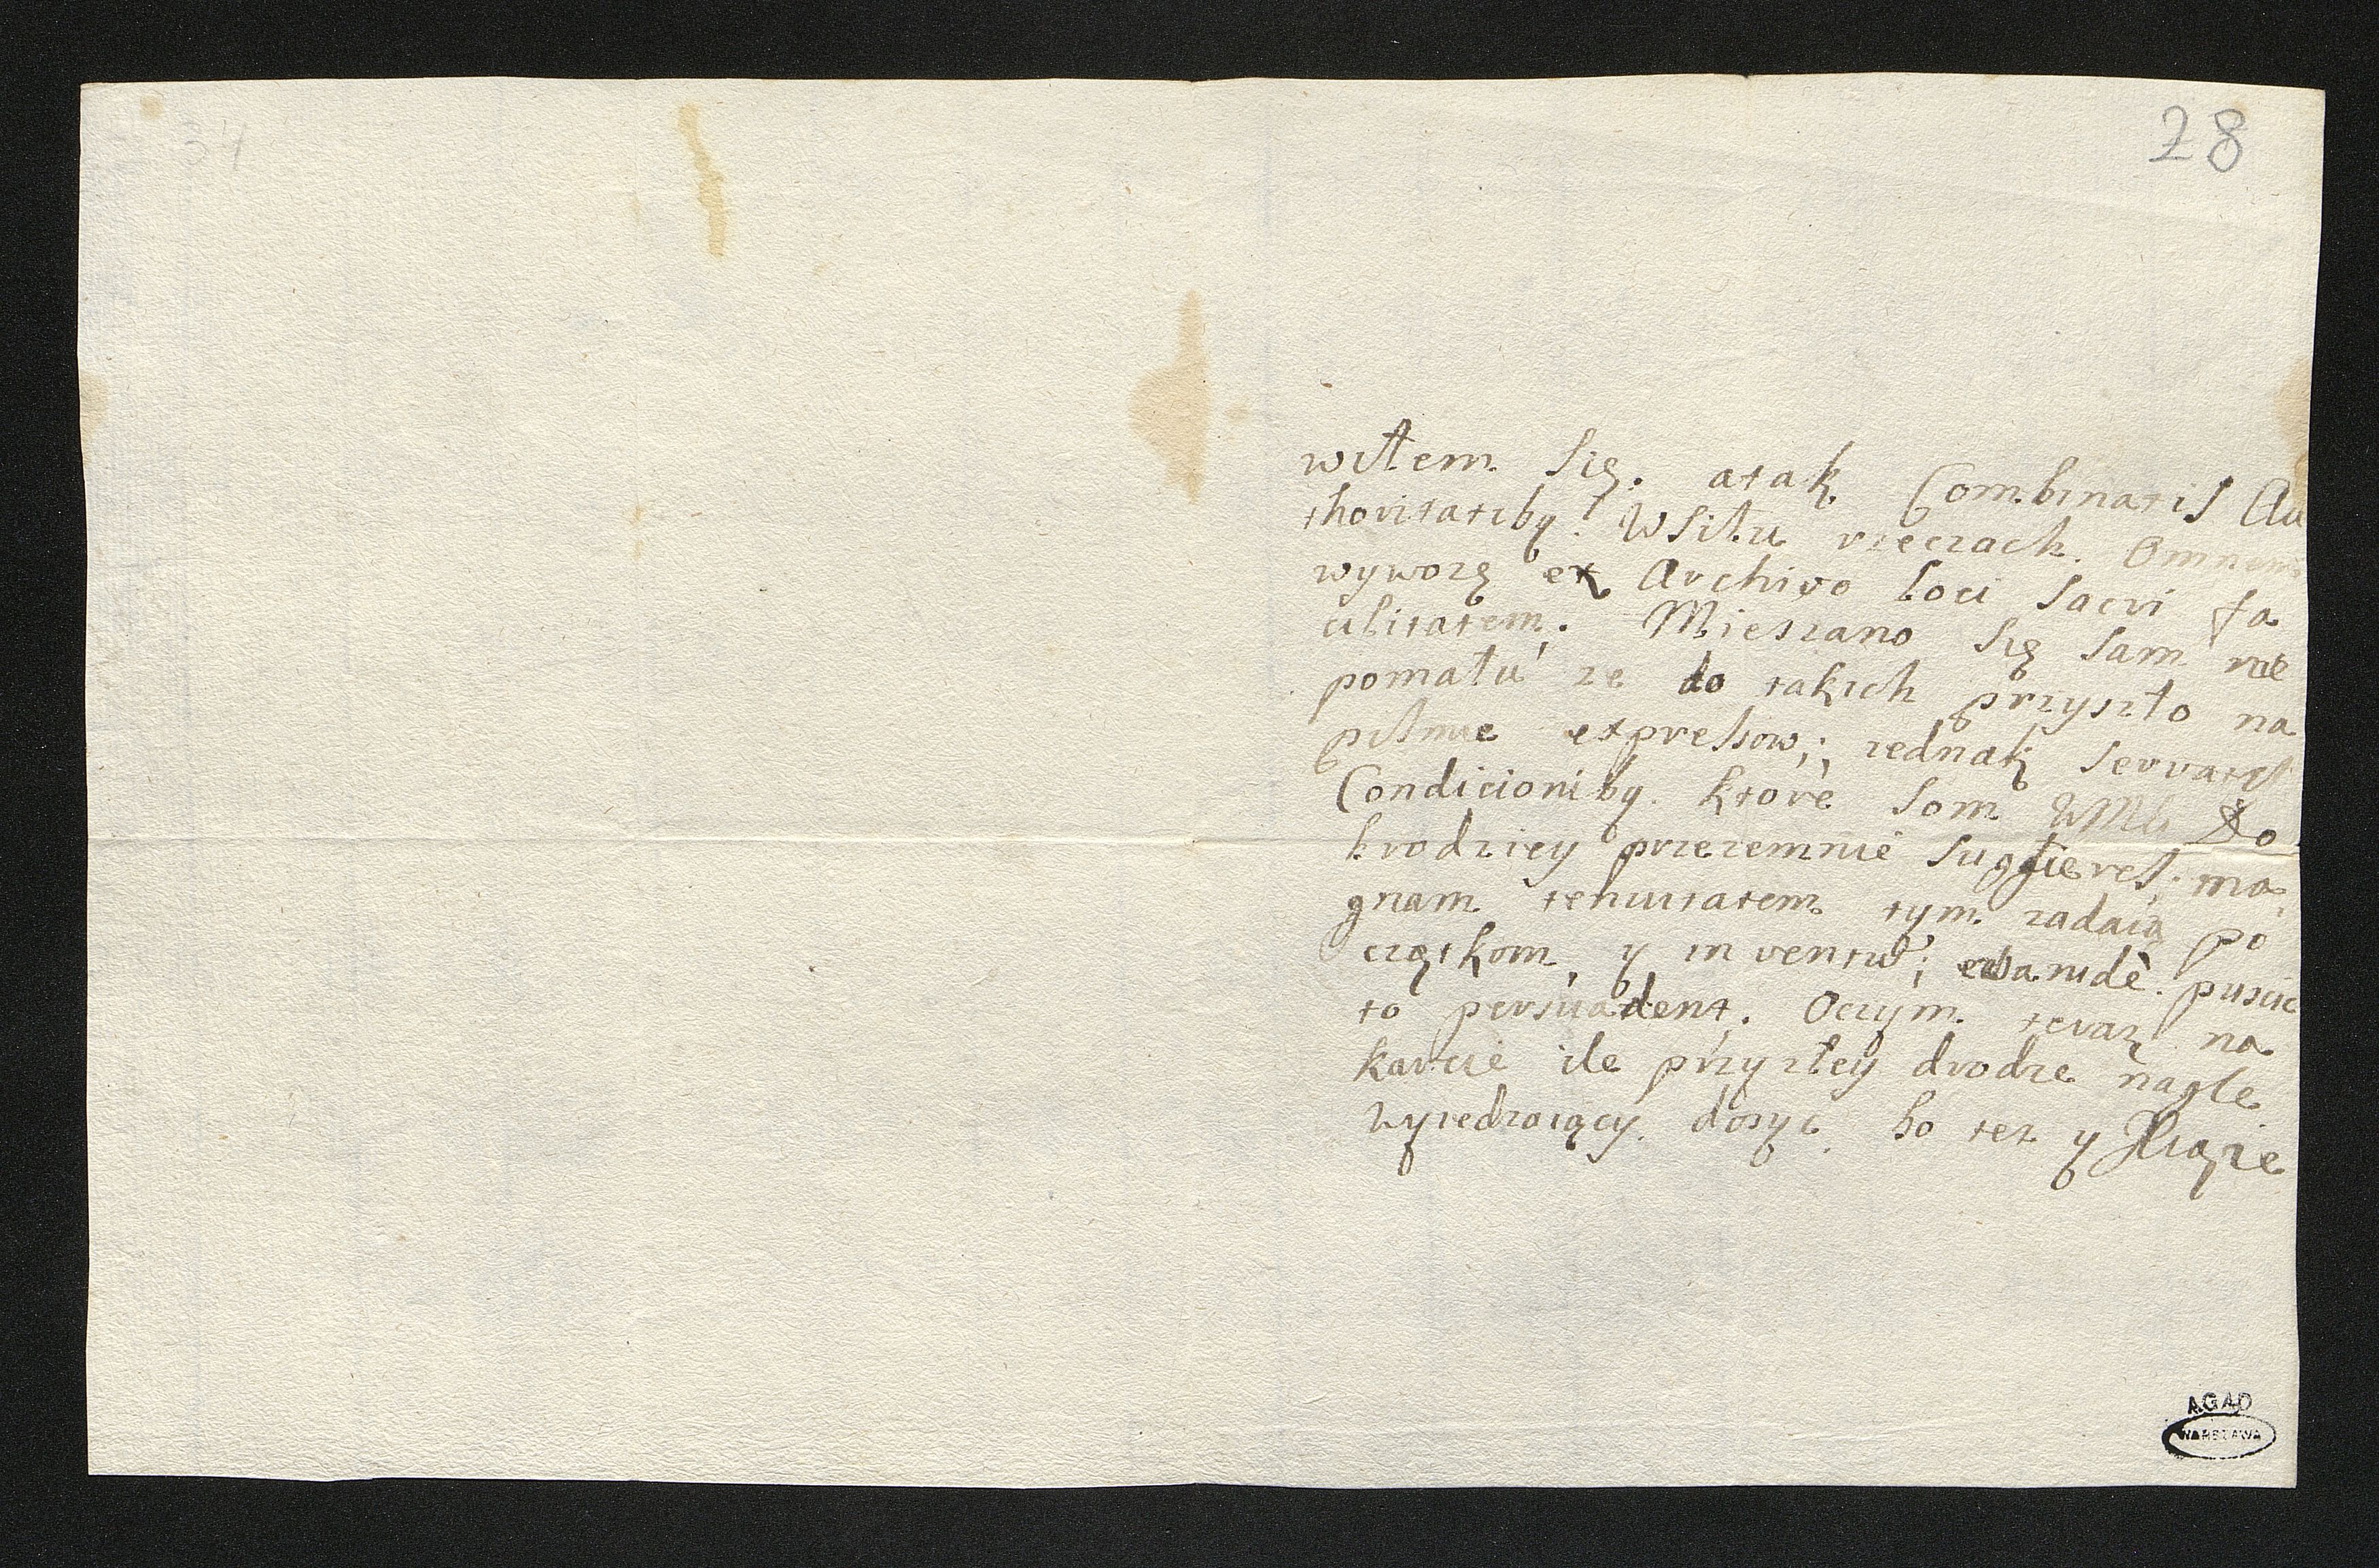 28
34
wiłem się. atak Combinatis Au
thoritatiby. Wsitu rzeczach. Omnem
wywożę ex Archivo Loci Sacri fa
cultatem. Mieszano się sam nie
pomału że do takich przyszło na
piśmie expressow; iednak servatis
Condicioniby. ktore som WMM Do
brodziey przezemnie suggieres; ma
gnam tenuitatem tym zadaią po
czątkom, y in ventu; puscic
to persuadent. Oczym teraz na
karcie ile przyszłey drodze nagle
wyiedzaiący. dosyc. bo tez y Xiąże
AGAD
WARSZAWA